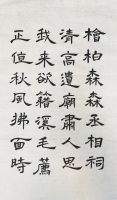 檜柏森森丞相祠
清高遺廟肅人思
我来欲籍溪毛薦
正值秋風拂面時